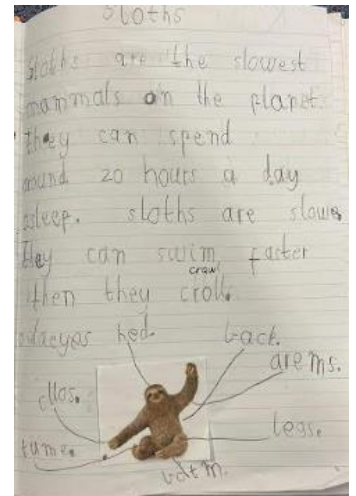 Sloths
Sloths are the slowest
mammals on the planet.
they can spend
around 20 hours a day
asleep. sloths are slows
they can swim faster
crawl
then they croll.
eyes hed. back.
arems.
cllos.
legs.
tume.